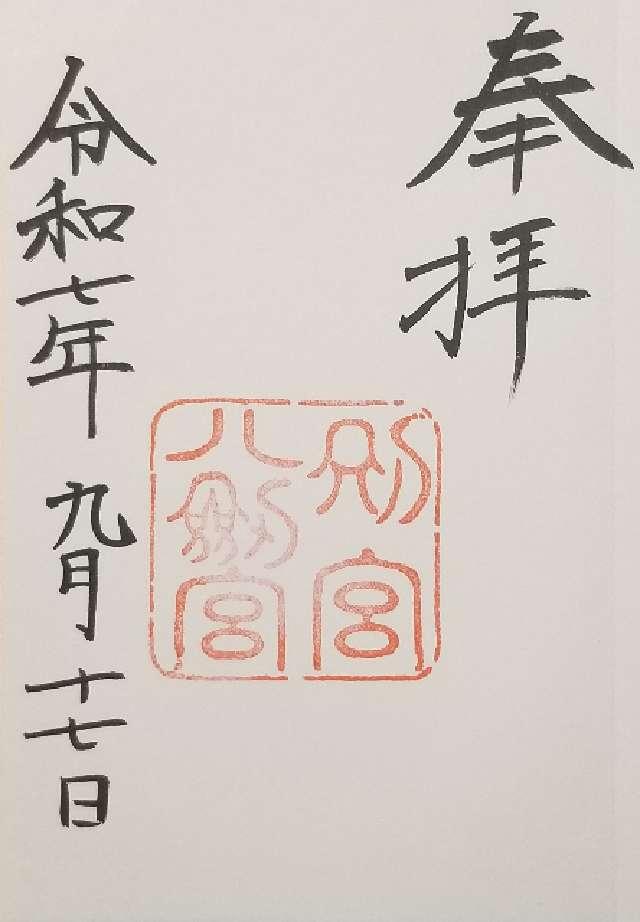 奉拝
別宮
八剣宮
令和七年九月十七日